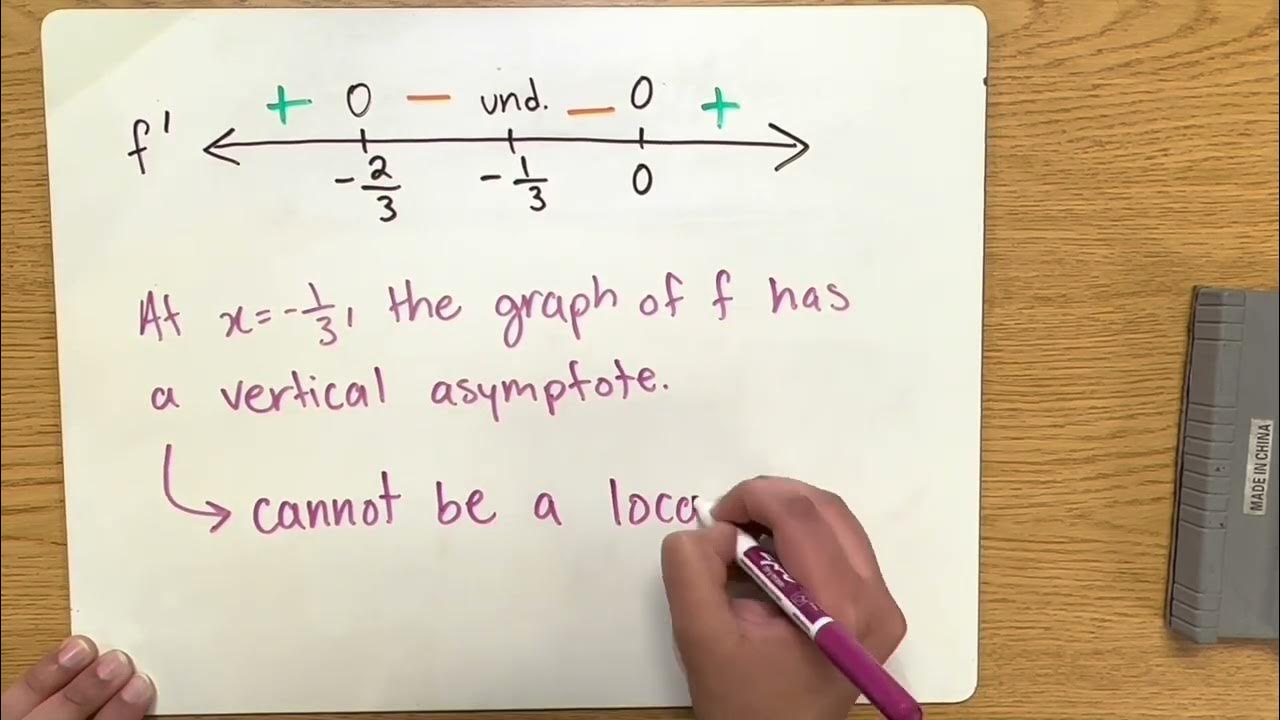 + 0 — und. — 0 +
f'
-2/3 -1/3 0
At x=-1/3, the graph of f has
a vertical asymptote.
cannot be a loca
MADE IN CHINA